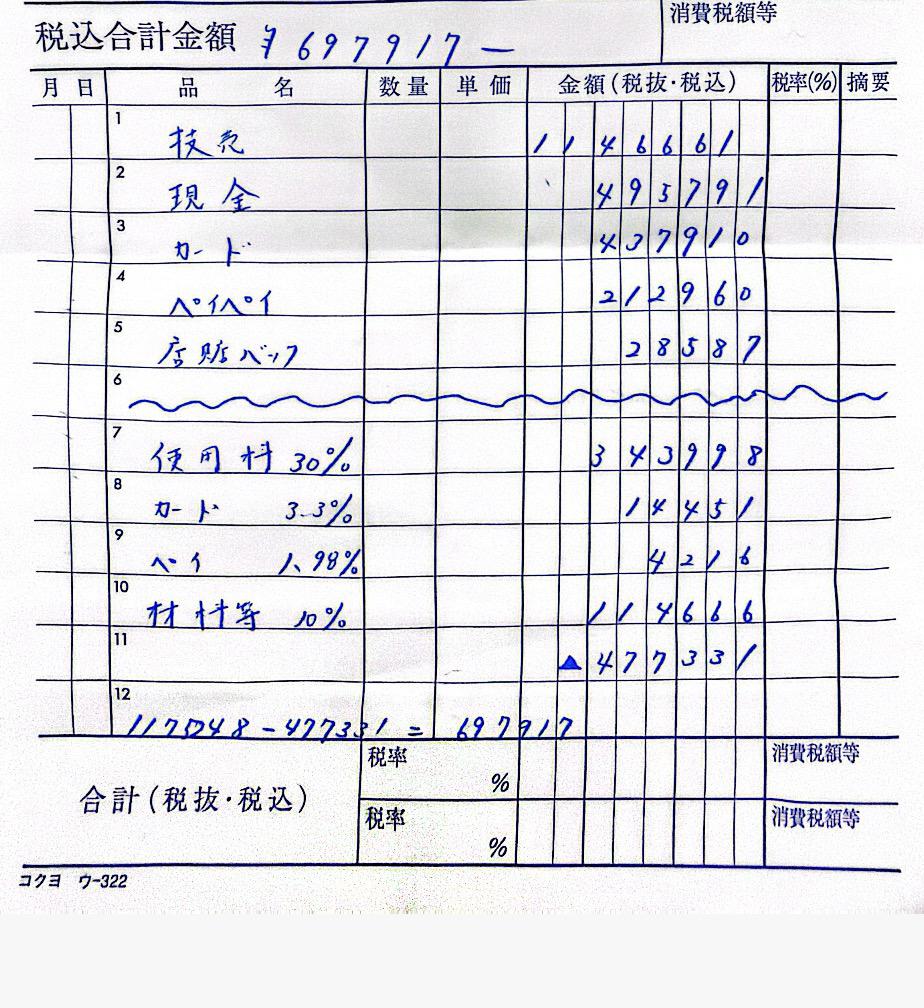 消費税額等
税込合計金額 ¥697917—
月 日 品 名 数量 単価 金額(税抜・税込) 税率(%) 摘要
1 技売 1146661
2 現金 495791
3 カード 437910
4 ペイペイ 212960
5 店販バック 28587
6
7 使用料 30% 343998
8 カード 3.3% 14451
9 ペイ 1.98% 4216
10 材料等 10% 114666
11 ▲477331
12
1175248-477331=697917
税率 % 消費税額等
合計(税抜・税込)
税率 % 消費税額等
コクヨ ウ-322